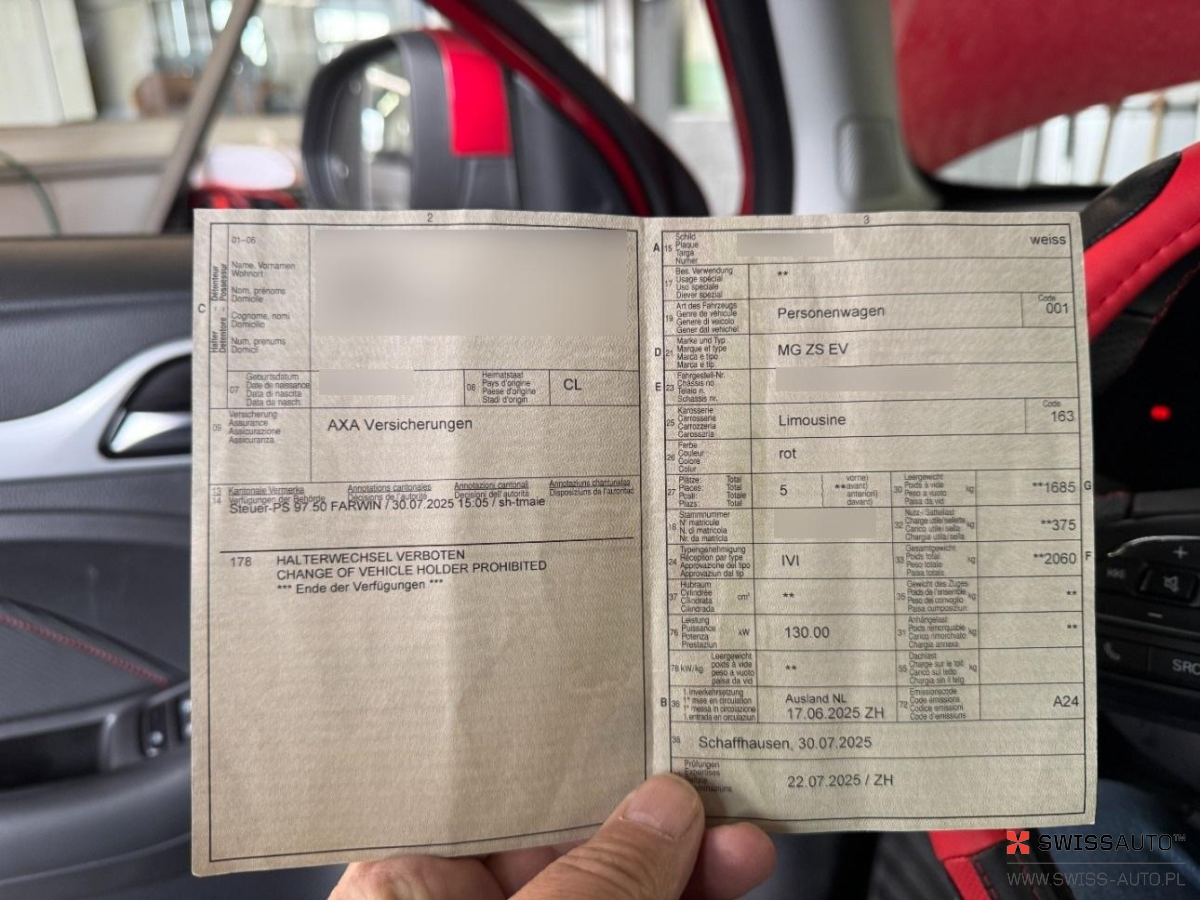 2
C
Halter - Détenteur
Detentore - Possessur
01-06
Name, Vornamen
Wohnort
Nom, prénoms
Domicile
Cognome, nomi
Domicilio
Num, prenums
Domicil
07
Geburtsdatum
Date de naissance
Data di nascita
Data da nasch.
08
Heimatstaat
Pays d'origine
Paese d'origine
Stadi d'origin
CL
09
Versicherung
Assurance
Assicurazione
Assicuranza
AXA Versicherungen
13
14
Kantonale Vermerke
Verfügungen der Behörde
Annotations cantonales
Décisions de l'autorité
Annotazioni cantonali
Decisioni dell'autorità
Annotaziuns chantunalas
Disposiziuns da l'autoritad
Steuer-PS 97.50 FARWIN / 30.07.2025 15:05 / sh-tmaie
178 HALTERWECHSEL VERBOTEN
CHANGE OF VEHICLE HOLDER PROHIBITED
*** Ende der Verfügungen ***
3
A 15
Schild
Plaque
Targa
Numer
weiss
17
Bes. Verwendung
Usage spécial
Uso speciale
Diever spezial
**
19
Art des Fahrzeugs
Genre de véhicule
Genere di veicolo
Gener dal vehichel
Personenwagen
Code
001
D 21
Marke und Typ
Marque et type
Marca e tipo
Marca e tip
MG ZS EV
E 23
Fahrgestell-Nr.
Châssis no
Telaio n.
Schassis nr.
25
Karosserie
Carrosserie
Carrozzeria
Carossaria
Limousine
Code
163
26
Farbe
Couleur
Colore
Colur
rot
27
Plätze: Total
Places: Total
Posti: Totale
Plazs: Total
5
vorne)
**avant)
anteriori)
davant)
30
Leergewicht
Poids à vide
Peso a vuoto
Paisa da vid
kg
**1685
G
18
Stammnummer
N° matricule
N. di matricola
Nr. da matricla
32
Nutz-/Sattellast
Charge utile/sellette
Carico utile/sella
Chargia utile/sella
kg
**375
24
Typengenehmigung
Réception par type
Approvazione del tipo
Approvaziun dal tip
IVI
33
Gesamtgewicht
Poids total
Peso totale
Paisa totala
kg
**2060
F
37
Hubraum
Cylindrée
Cilindrata
Cilindrada
cm³
**
35
Gewicht des Zuges
Poids de l'ensemble
Peso del convoglio
Paisa cumposiziun
kg
**
76
Leistung
Puissance
Potenza
Prestaziun
kW
130.00
31
Anhängelast
Poids remorquable
Carico rimorchiato
Chargia annexa
kg
**
78 kW/kg
Leergewicht
poids à vide
peso a vuoto
paisa da vid
**
55
Dachlast
Charge sur le toit
Carico sul tetto
Chargia sin il tetg
kg
B 36
1. Inverkehrsetzung
1re mise en circulation
1a messa in circolazione
1. entrada en circulaziun
Ausland NL
17.06.2025 ZH
72
Emissionscode
Code émissions
Codice emissioni
Code d'emissiuns
A24
38
Schaffhausen, 30.07.2025
Prüfungen
Expertises
22.07.2025 / ZH
SRC
SWISSAUTO™
WWW.SWISS-AUTO.PL